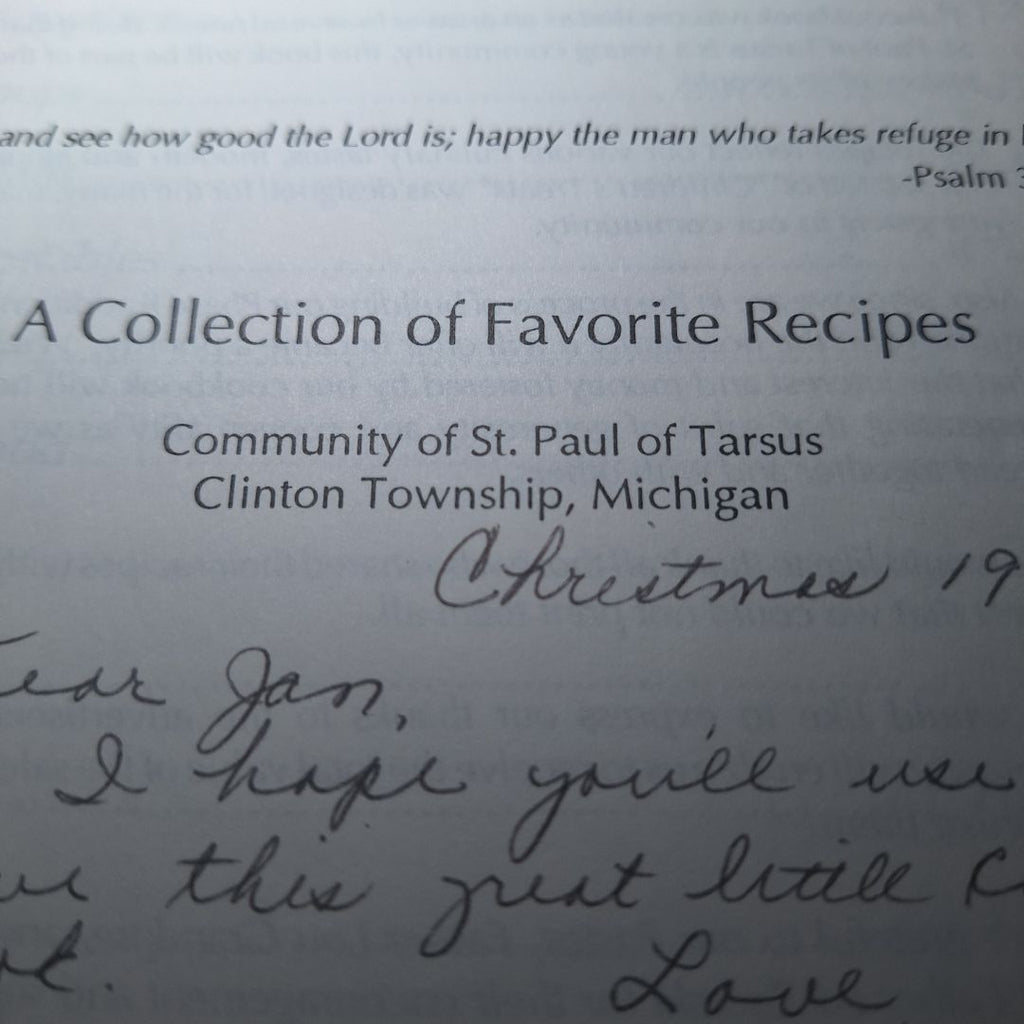 and see how good the Lord is; happy the man who takes refuge in
-Psalm 3
A Collection of Favorite Recipes
Community of St. Paul of Tarsus
Clinton Township, Michigan
Christmas 19
ear Jan,
I hope you'll use
this great little C
Love